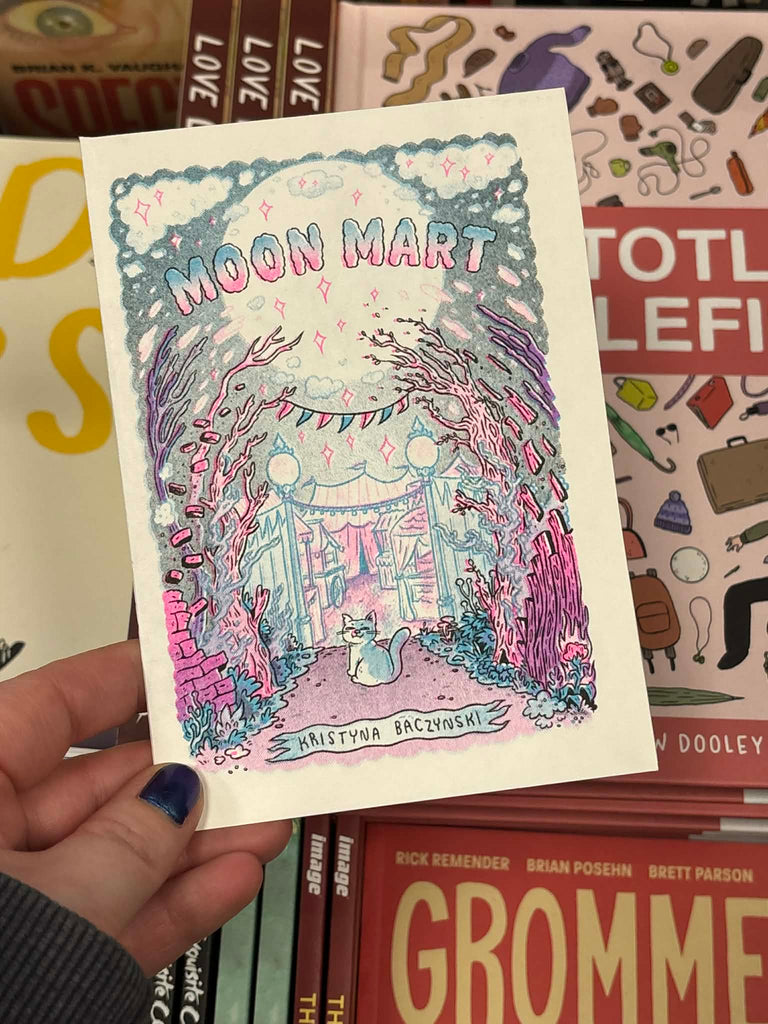 BRIAN K. VAUGH
SPEC
LOVE
LOVE
LOVE
MOON MART
KRISTYNA BACZYNSKI
TOTL
LEFI
W DOOLEY
image
image
TH
TH
RICK REMENDER BRIAN POSEHN BRETT PARSON
GROMME